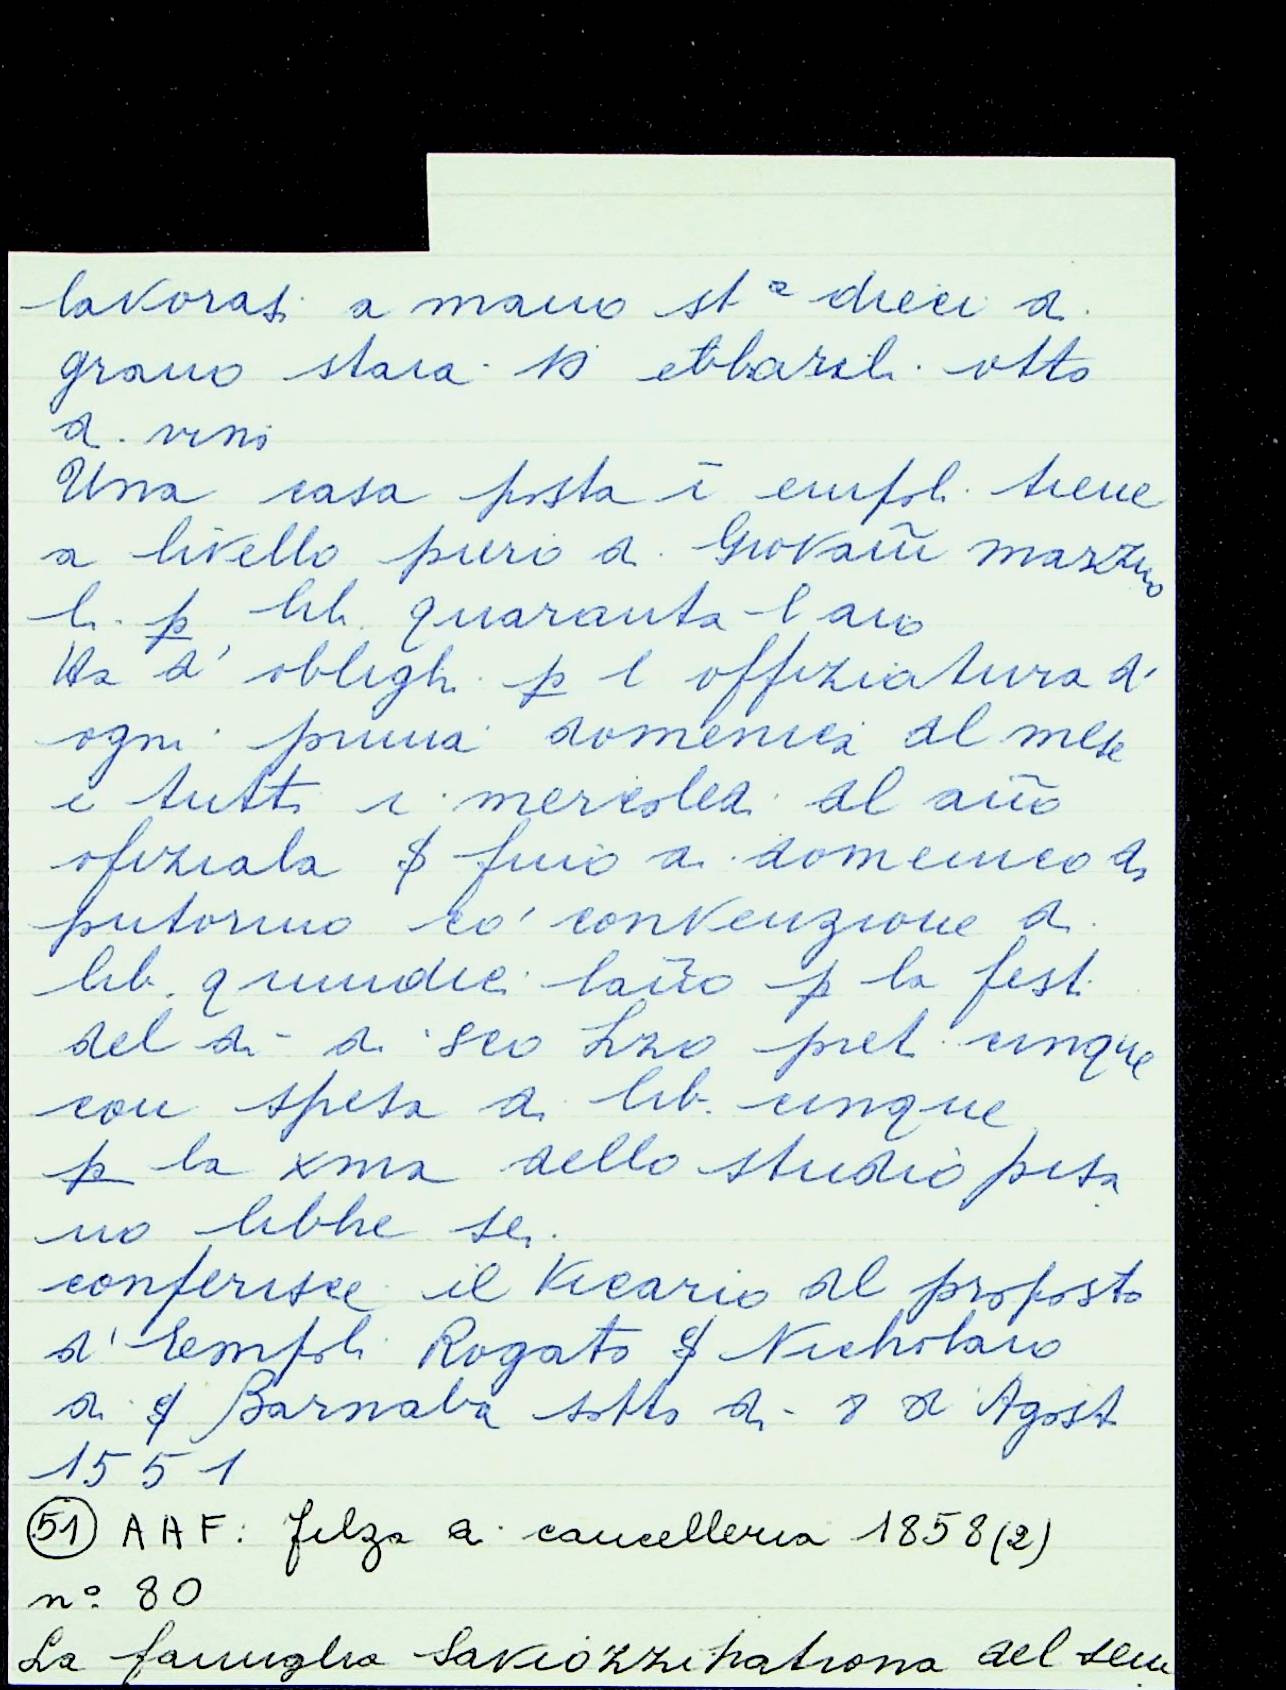 lavorasi a mano stª dieci di
grano staia 10 ebbarili otto
di vini
Una casa posta ī empoli tiene
a livello piero di Giovañi mazzuo
li p lib. quaranta l ano
Ha d' oblighi p l offiziatura d'
ogni prima domenica del mese
e tutti i mercoledi del año
ofiziala $ fuio di domenico di
putorno co' convenzione di
lib. quindici laño p la fest
del di - di sco Lzo preti cinque
con spesa di lib. cinque
p la xma dello studio pisa
no libbre sei.
conferisce il Vicario del proposto
d' Eempoli Rogato $ Nicholaio
di $ Barnaba sotto di - 8 d Agost
1551
(51) AAF: filza di cancelleria 1858(2)
nº 80
La famiglia Saviozzi patrona del sem